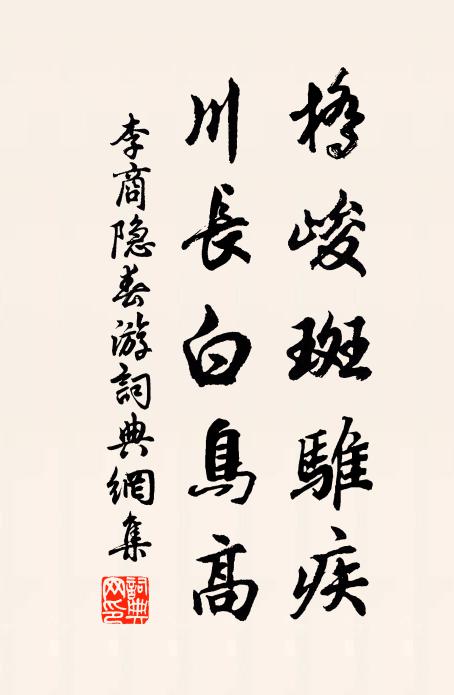 橋峻斑騅疾
川長白鳥高
李商隐春游詞典網集
詞典網印